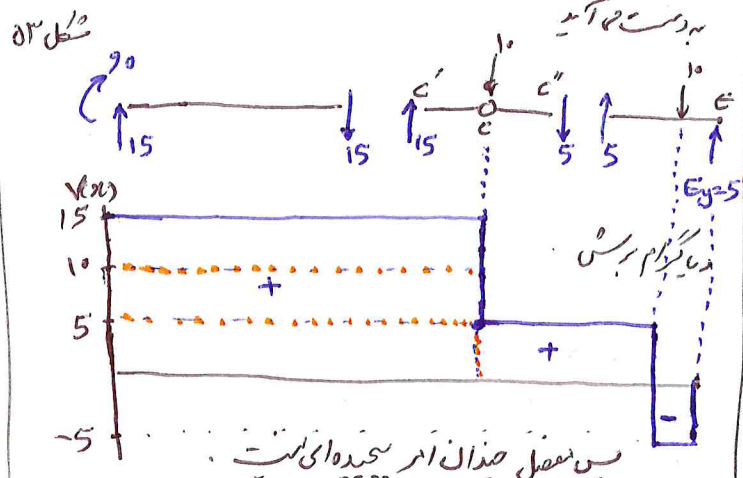 شکل ۵۳
به دست می آید
90
10
10
C' C C" E
15 15 15 5 5 Ey=5
V(x)
15
10
5
-5
+
+
-
دیاگرام برش
پس مفصل چندان امر پیچیده‌ای نیست.